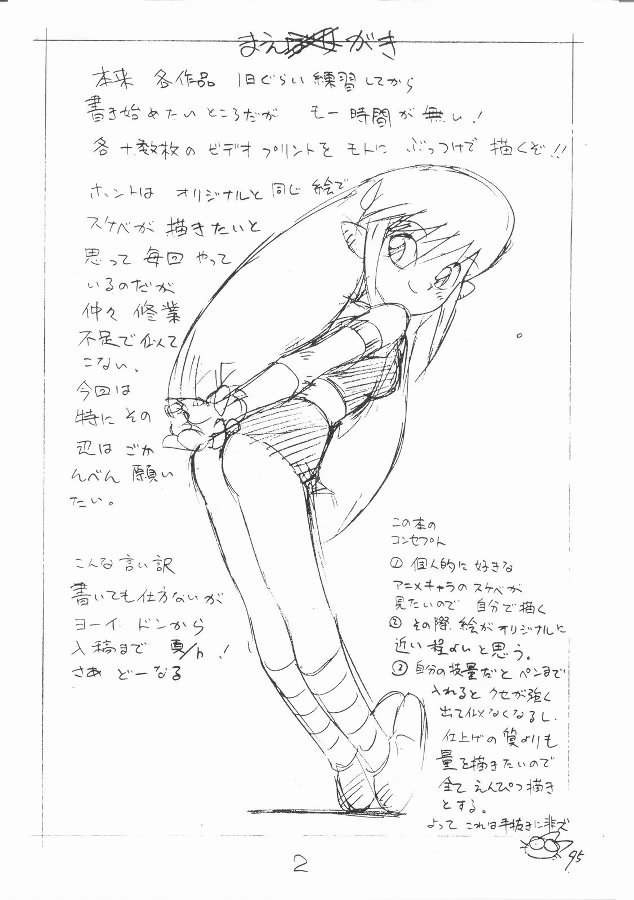 まえがき
本来 各作品 1日ぐらい練習してから
書き始めたいところだが もー時間が無い!
各十数枚のビデオプリントをモトに ぶっつけで描くぞ!!
ホントは オリジナルと同じ絵で
スケベが描きたいと
思って毎回やって
いるのだが
仲々修業
不足で似て
こない。
今回は
特にその
辺はごか
んべん願い
たい。
こんな言い訳
書いても仕方ないが
ヨーイ ドンから
入稿まで
さあ どーなる
この本の
コンセプト
① 個人的に好きな
アニメキャラのスケベが
見たいので 自分で描く
② その際、絵がオリジナルに
近い程よいと思う。
③ 自分の技量だとペンまで
入れるとクセが強く
出て似なくなるし、
仕上げの質よりも
量を描きたいので
全てえんぴつ描き
とする。
よって これは手抜きに非ズ
95
2